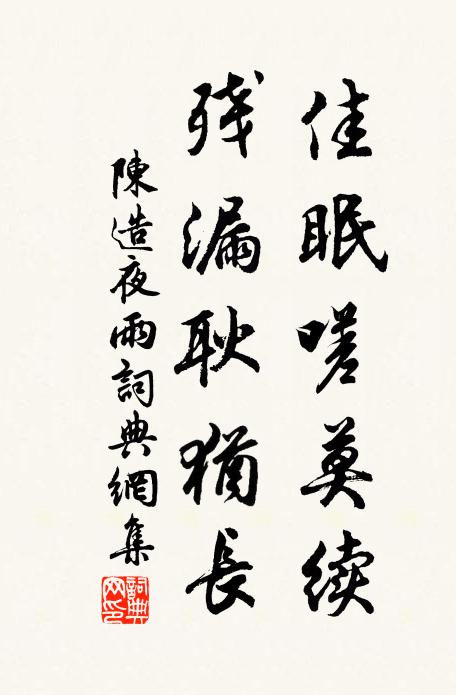 佳眠嗟莫续
残漏耿犹長
陳造夜雨詞典網集
詞典网印